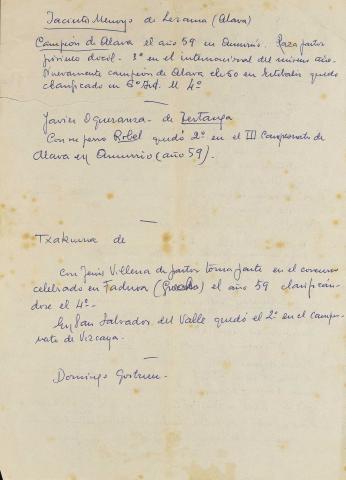 Jacinto Menoyo de Lezama (Alava)
Campeón de Alava el año 59 en Amurrio. Raza pastor
pirineo . 3º en el internacional del mismo año.
Nuevamente campeón de Alava el 60 en quedó
clasificado en 6º Int. el 4º
—
Javier Oqueranza - de Tertanga
Con su perro Robel quedó 2º en el III Campeonato de
Alava en Amurrio (año 59).
—
Txakurra de
con Jesús Villena de pastor toma parte en el concurso
celebrado en Fadura (Guecho) el año 59 clasifican-
dose el 4º.-
En San Salvador del Valle quedó el 2º en el campeo-
nato de Vizcaya.
—
Domingo